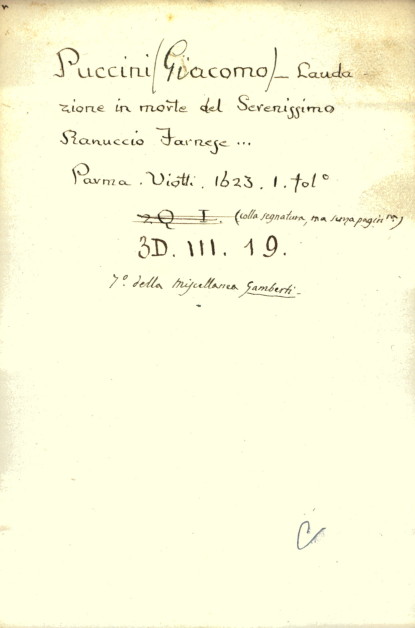 Puccini (Giacomo) – Lauda
zione in morte del Serenissimo
Ranuccio Farnese ...
Parma . Viotti . 1623 . 1 . fol°
2Q I. (colla segnatura, ma senza paginne)
3D. III. 19.
7° della Miscellanea Gamberti –
C